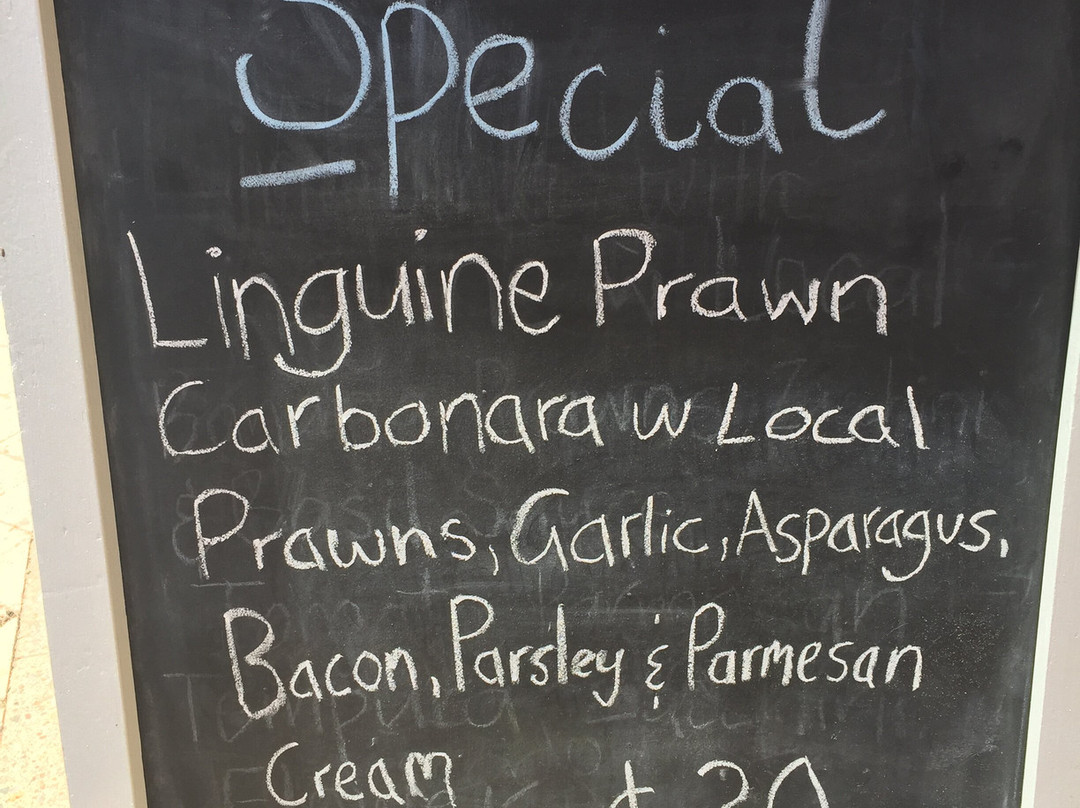 Special
Linguine Prawn
Carbonara w Local
Prawns, Garlic, Asparagus,
Bacon, Parsley & Parmesan
Cream